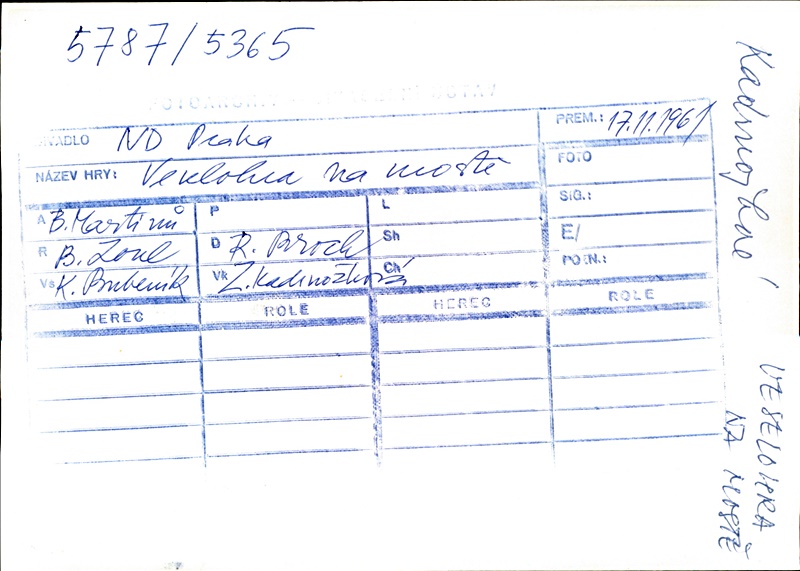 5787/5365
DIVADLO ND Praha
PREM.: 17.11.1961
NÁZEV HRY: Veselohra na mostě
FOTO
A B. Martinů
P
L
SIG.:
R B. Zoul
D R. Broch
Sh
E/
Vs K. Bubeník
Vk Z. Kadrnožková
Ch
POZN.:
HEREC ROLE HEREC ROLE
VESELOHRA
NA MOSTĚ